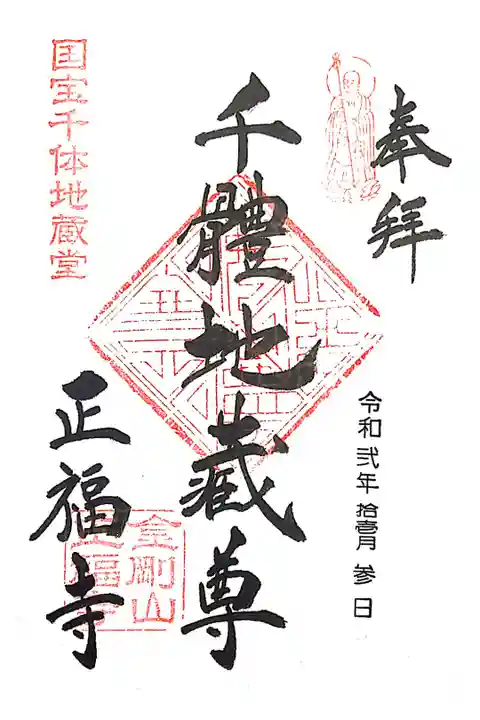 奉拜
令和弐年拾壹月参日
千體地藏尊
国宝千体地蔵堂
正福寺
金剛山
正福寺